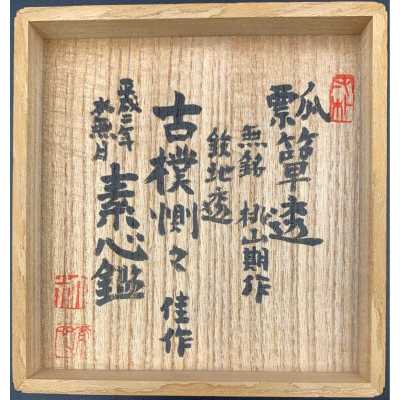 瓢箪透
無銘 桃山期作
鉄地透
古樸惻々 佳作
平成三年
水無月
素心鑑